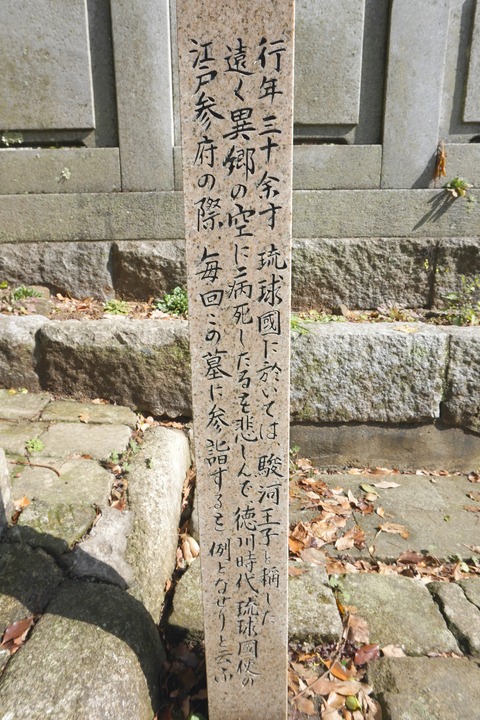 行年三十余才 琉球國に於いては駿河王子と稱した
遠く異郷の空に病死したるを悲しんで徳川時代琉球国使の
江戸参府の際 毎回この墓に参詣するを例となせりと云ふ